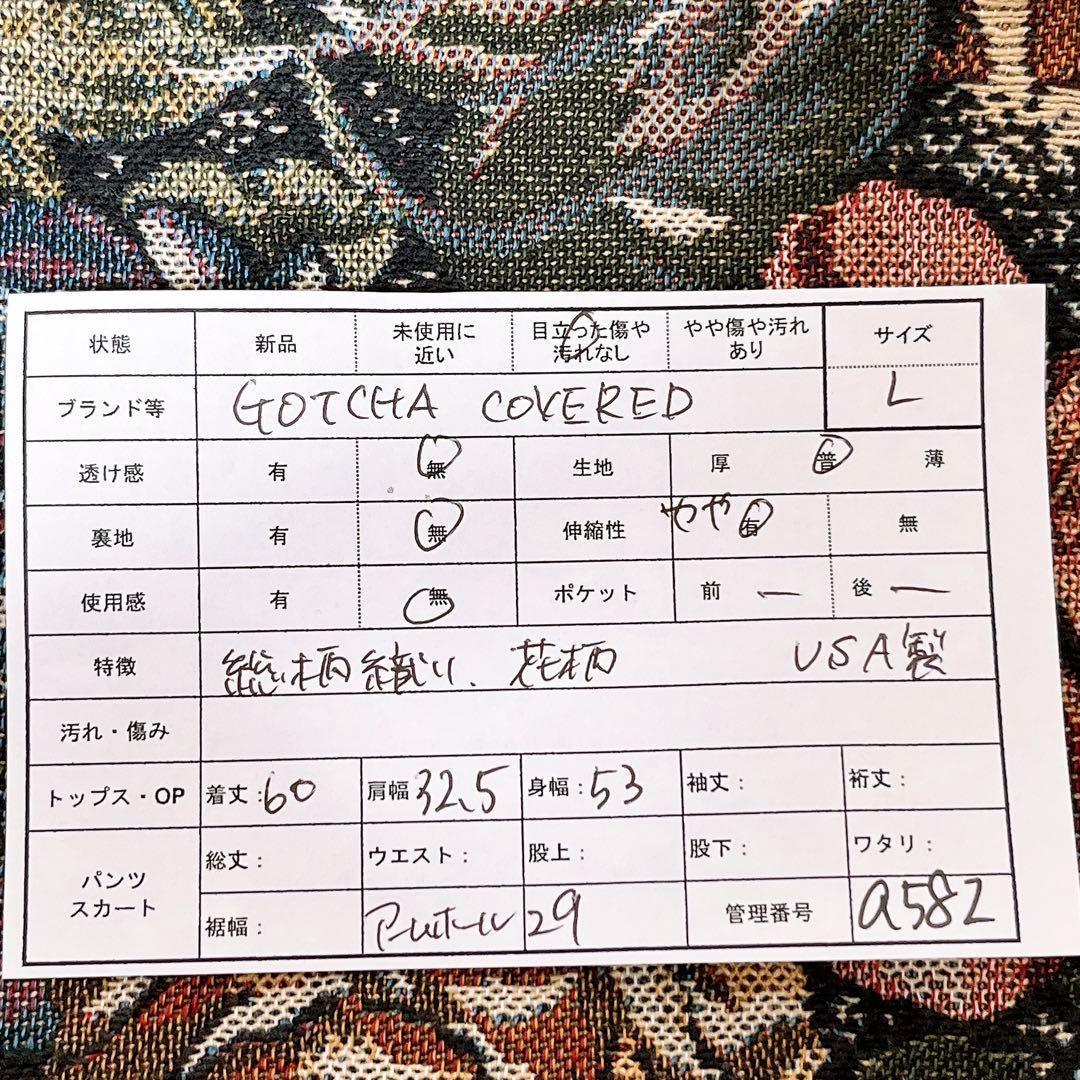 状態 新品 未使用に近い 目立った傷や汚れなし やや傷や汚れあり サイズ
ブランド等 GOTCHA COVERED L
透け感 有 無 生地 厚 普 薄
裏地 有 無 伸縮性 やや有 無
使用感 有 無 ポケット 前 ー 後 ー
特徴 総柄織り、花柄 USA製
汚れ・傷み
トップス・OP 着丈:60 肩幅32.5 身幅:53 袖丈: 裄丈:
パンツ スカート 総丈: ウエスト: 股上: 股下: ワタリ:
裾幅: アームホール 29 管理番号 a582